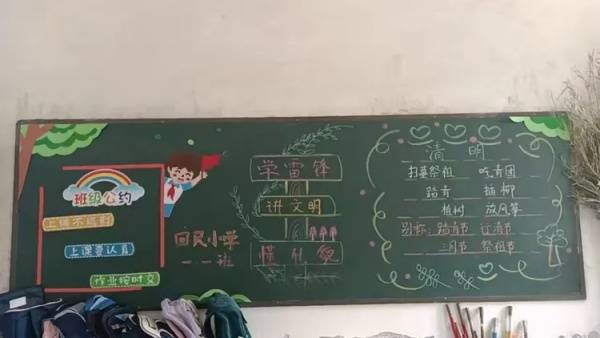 班级公约
上课不迟到
上课要认真
作业按时交
回民小学
一一班
学雷锋
讲文明
懂礼貌
清明
扫墓祭祖 吃青团
踏青 插柳
植树 放风筝
别称：踏青节 行清节
三月节 祭祖节